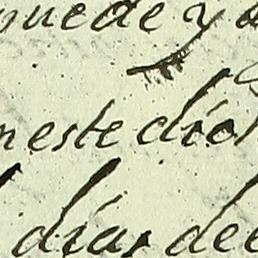 puede y
neste dia
dias de